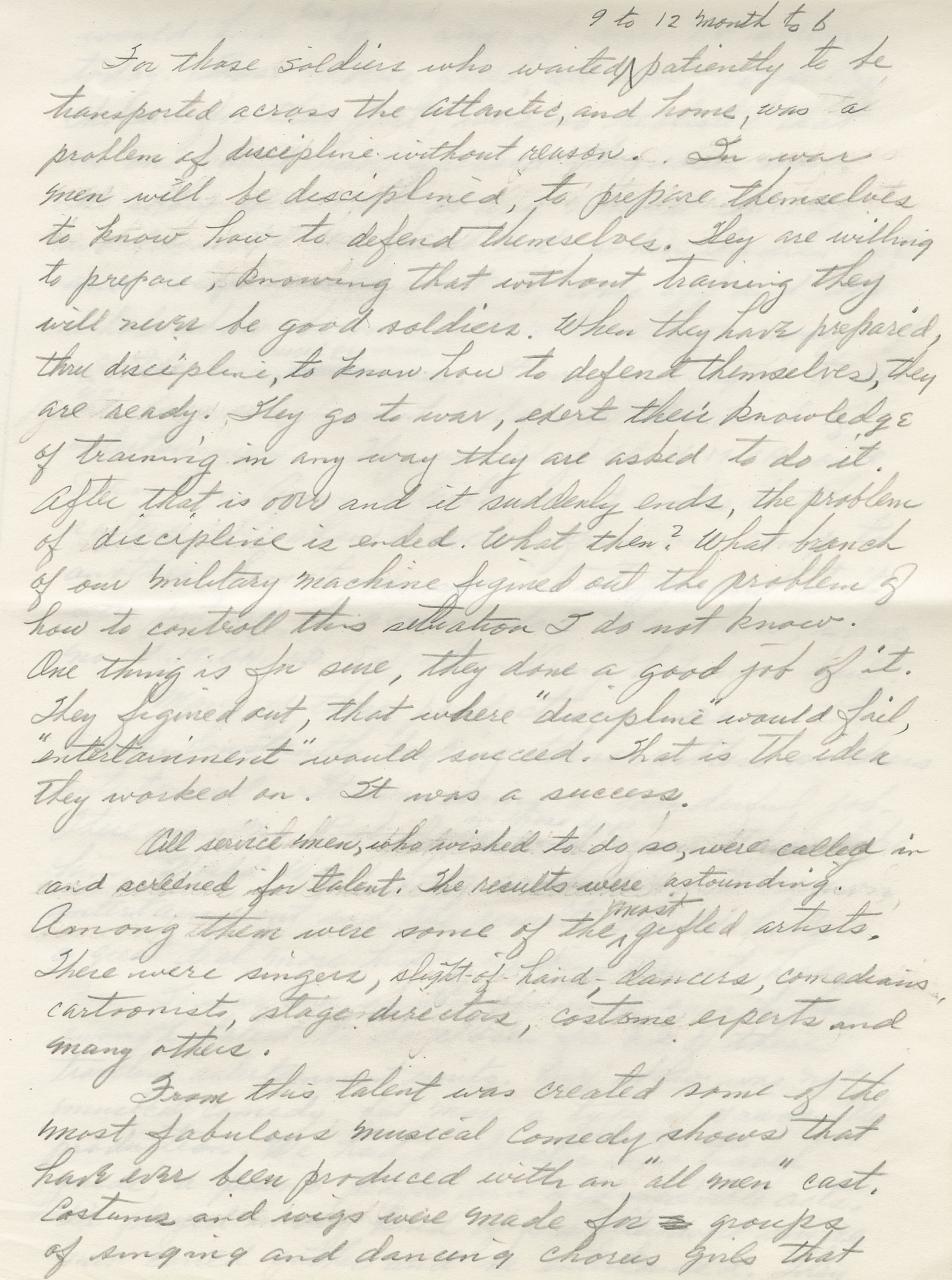 9 to 12 month to b
For those soldiers who waited patiently to be
transported across the Atlantic, and home, was a
problem of discipline without reason. . In war
men will be disciplined, to prepare themselves
to know how to defend themselves. They are willing
to prepare, knowing that without training they
will never be good soldiers. When they have prepared,
thru discipline, to know how to defend themselves, they
are ready. They go to war, exert their knowledge
of training in any way they are asked to do it.
After that is over and it suddenly ends, the problem
of discipline is ended. What then? What branch
of our military machine figined out the problem of
how to controll this situation I do not know.
One thing is for sure, they done a good job of it.
They figined out, that where "discipline" would fail,
"entertainment" would succeed. That is the idea
they worked on. It was a success.
All service men, who wished to do so, were called in
and screened for talent. The results were astounding.
Among them were some of the most gifled artists.
There were singers, slight-of-hand-, dancers, comedians,
cartoonists, stage directors, costome experts and
many others.
From this talent was created some of the
most fabulous musical comedy shows that
have ever been produced with an "all men" cast.
Costums and wigs were made for groups
of singing and dancing chorus girls that